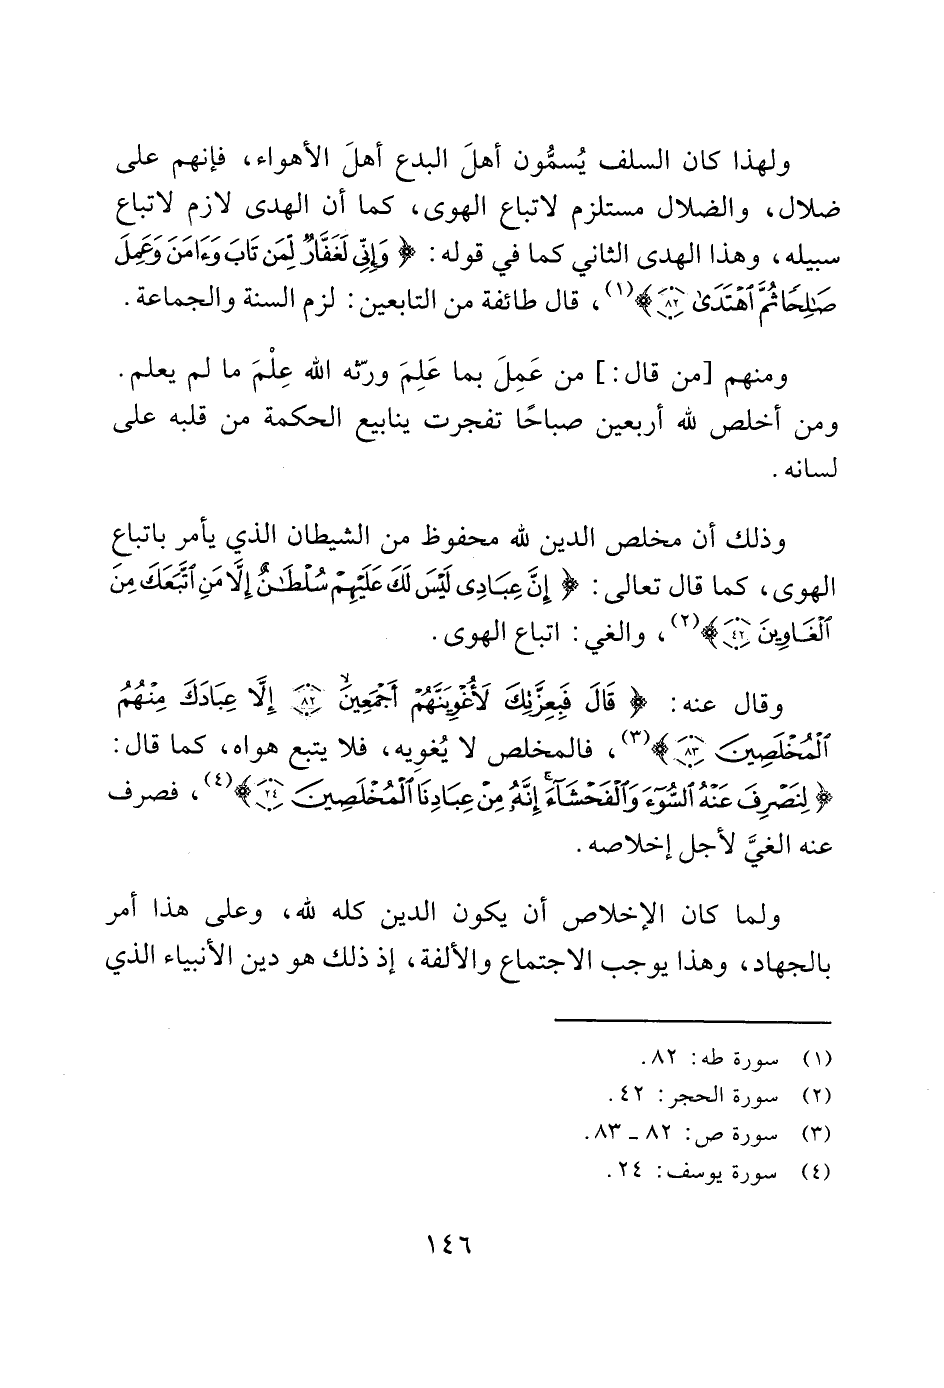 ولهذا كان السلف يُسمُّون أهلَ البدع أهلَ الأهواء، فإنهم على
ضلال، والضلال مستلزم لاتباع الهوى، كما أن الهدى لازم لاتباع
سبيله، وهذا الهدى الثاني كما في قوله: ﴿ وَإِنِّي لَغَفَّارٌ لِّمَن تَابَ وَءَامَنَ وَعَمِلَ
صَٰلِحًا ثُمَّ ٱهْتَدَىٰ ٨٢ ﴾(١)، قال طائفة من التابعين: لزم السنة والجماعة.
ومنهم [من قال:] من عَمِلَ بما عَلِمَ ورثه الله عِلْمَ ما لم يعلم.
ومن أخلص لله أربعين صباحًا تفجرت ينابيع الحكمة من قلبه على
لسانه.
وذلك أن مخلص الدين لله محفوظ من الشيطان الذي يأمر باتباع
الهوى، كما قال تعالى: ﴿ إِنَّ عِبَادِى لَيْسَ لَكَ عَلَيْهِمْ سُلْطَٰنٌ إِلَّا مَنِ ٱتَّبَعَكَ مِنَ
ٱلْغَاوِينَ ٤٢ ﴾(٢)، والغي: اتباع الهوى.
وقال عنه: ﴿ قَالَ فَبِعِزَّتِكَ لَأُغْوِيَنَّهُمْ أَجْمَعِينَ ٨٢ إِلَّا عِبَادَكَ مِنْهُمُ
ٱلْمُخْلَصِينَ ٨٣ ﴾(٣)، فالمخلص لا يُغويه، فلا يتبع هواه، كما قال:
﴿ لِنَصْرِفَ عَنْهُ ٱلسُّوٓءَ وَٱلْفَحْشَآءَ إِنَّهُۥ مِنْ عِبَادِنَا ٱلْمُخْلَصِينَ ٢٤ ﴾(٤)، فصرف
عنه الغيَّ لأجل إخلاصه.
ولما كان الإخلاص أن يكون الدين كله لله، وعلى هذا أمر
بالجهاد، وهذا يوجب الاجتماع والألفة، إذ ذلك هو دين الأنبياء الذي
(١) سورة طه: ٨٢.
(٢) سورة الحجر: ٤٢.
(٣) سورة ص: ٨٢ ـ ٨٣.
(٤) سورة يوسف: ٢٤.
١٤٦